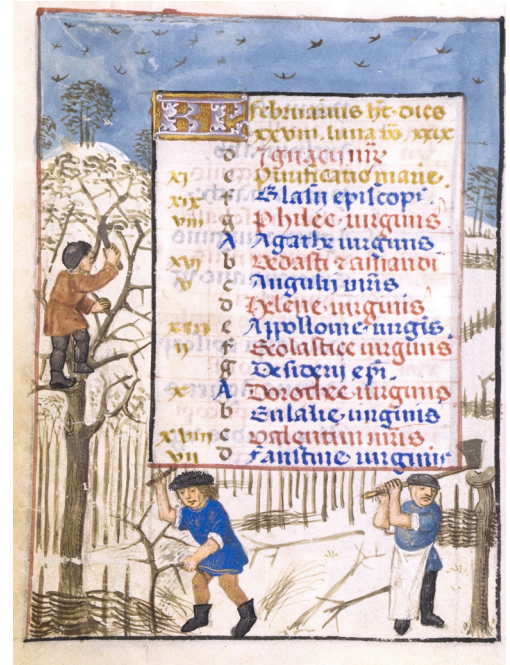 KL februarius ht dies
xxviii. luna vo xxix
d Ignacii mr
xi e Purificatio marie.
xix f Blasii episcopi
viii g Philee virginis
A Agathe virginis
xvi b vedasti z amandi
v c Anguli mris
d Helene virginis
xiii e Appollonie virgis.
ii f Scolastice virginis
g Desiderij epi.
x A Dorothee virginis
b Eulalie virginis
xviii c valentini mris
vii d faustine virginis